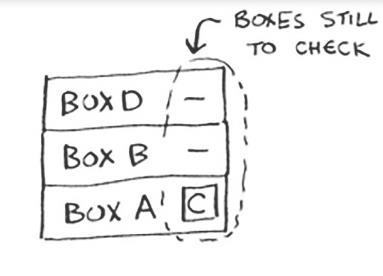 BOXES STILL
TO CHECK
BOX D –
BOX B –
BOX A C